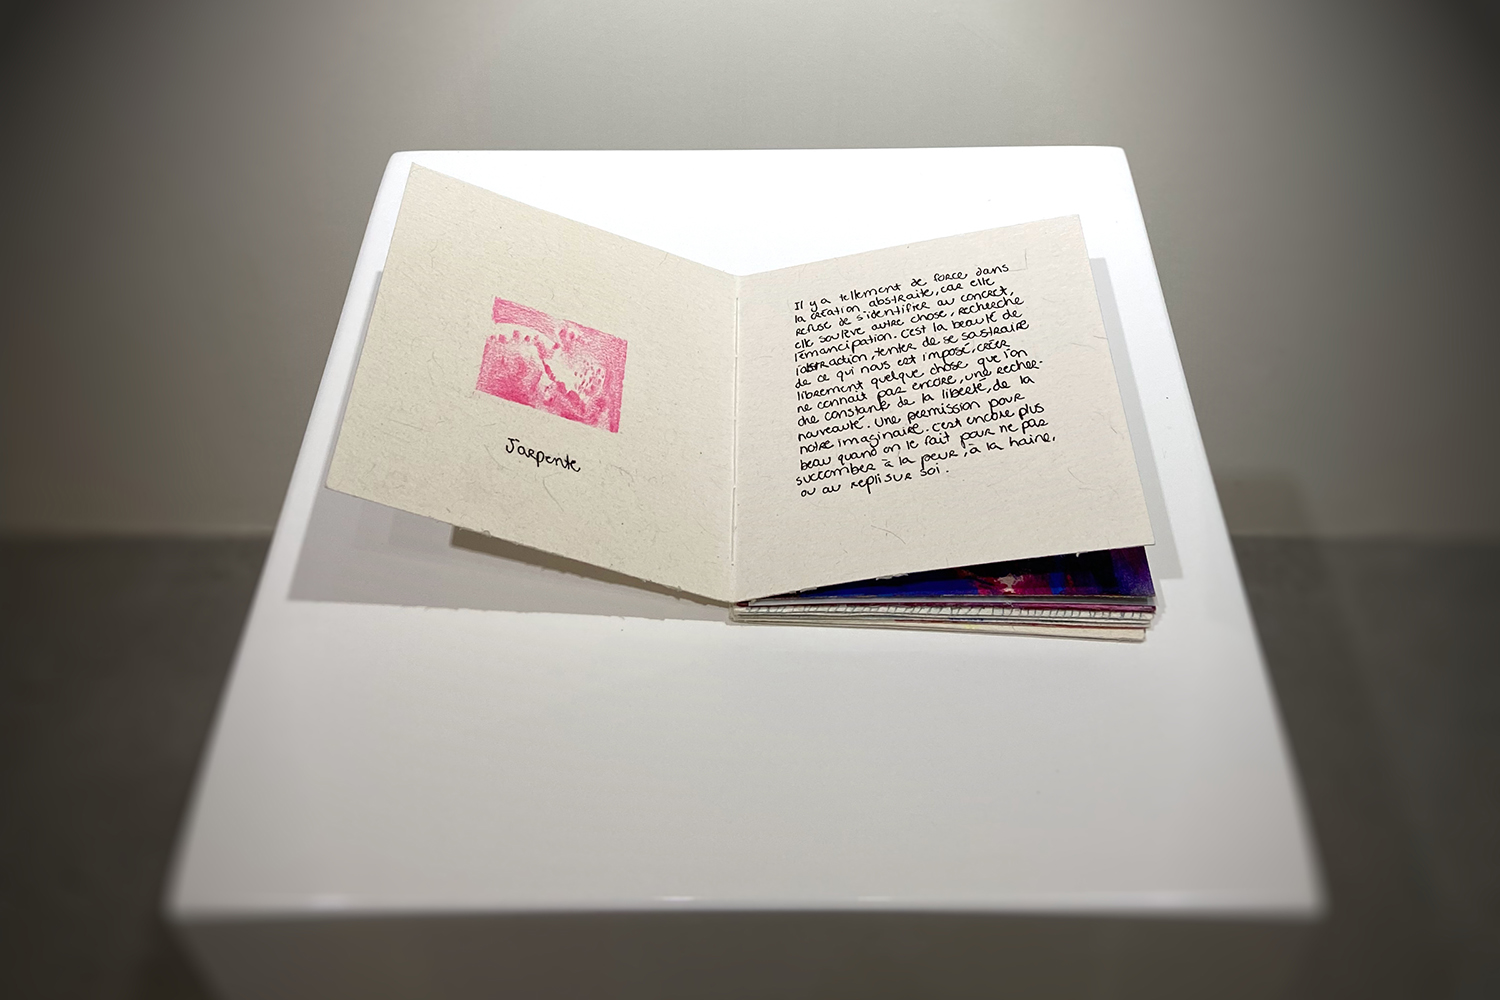 J'arpente
Il y a tellement de force dans
la création abstraite, car elle
refuse de s'identifier au concret,
elle soulève autre chose, recherche
l'émancipation. C'est la beauté de
l'abstraction, tenter de se soustraire
de ce qui nous est imposé, créer
librement quelque chose que l'on
ne connait pas encore, une recher-
che constante de la liberté, de la
nouveauté. Une permission pour
notre imaginaire. C'est encore plus
beau quand on le fait pour ne pas
succomber à la peur, à la haine,
ou au repli sur soi.